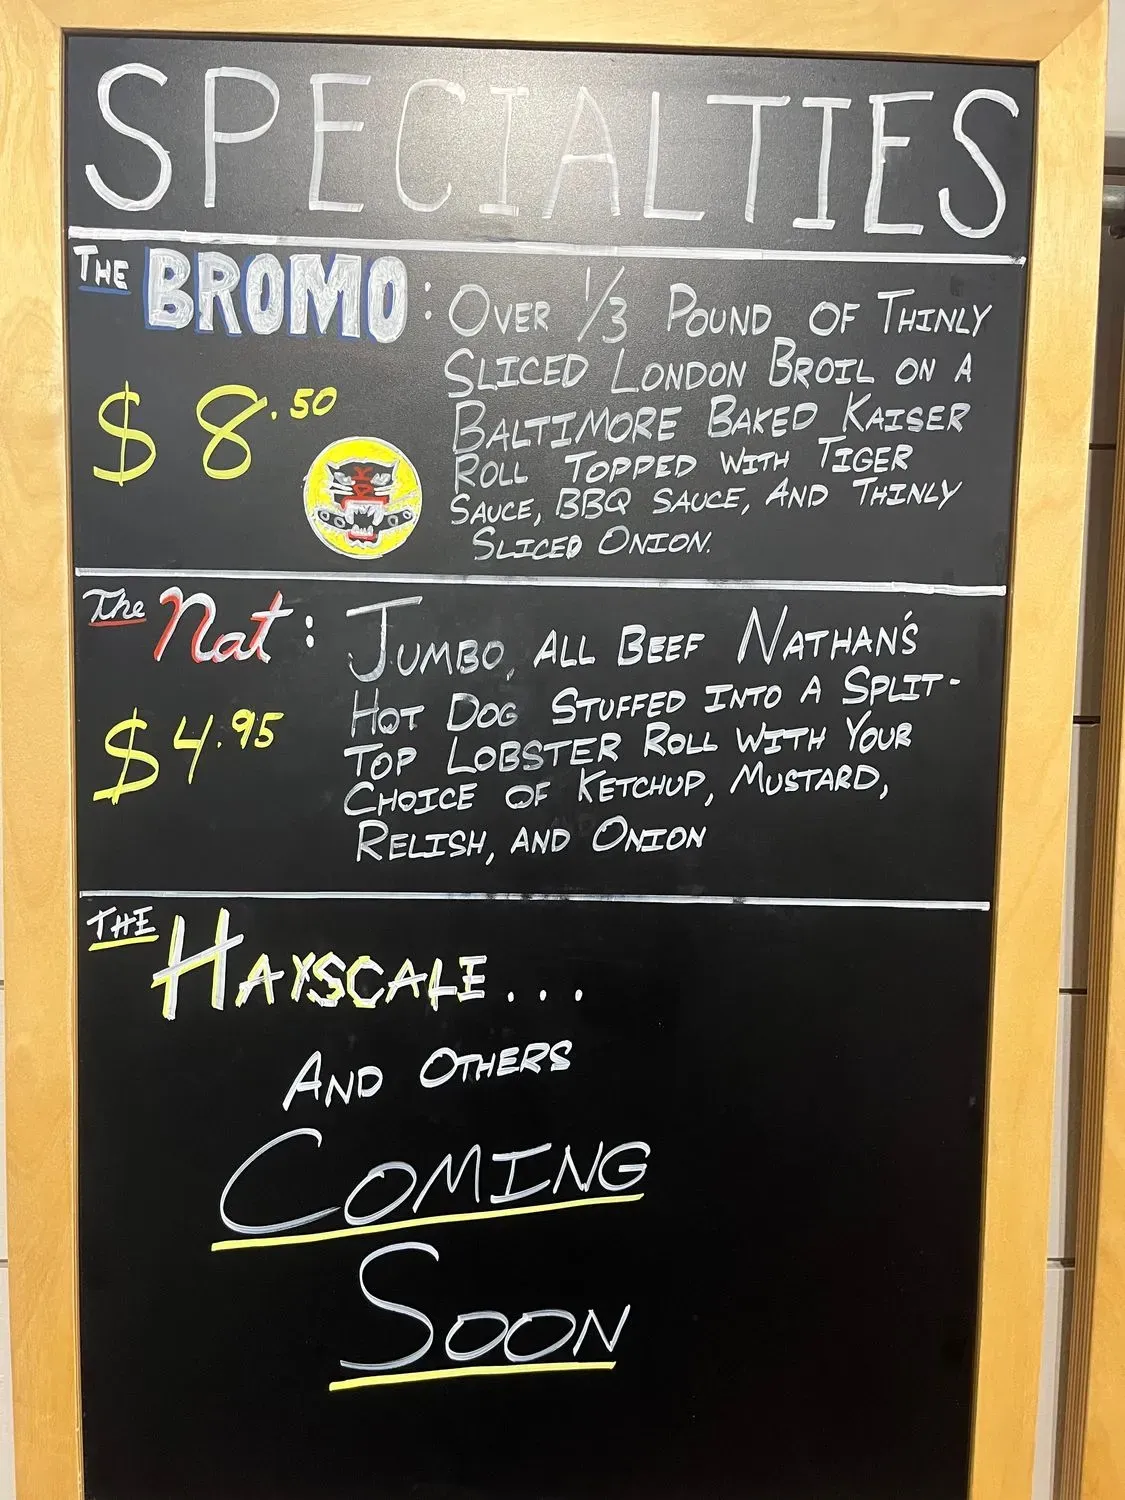 SPECIALTIES
THE BROMO:
$8.50
OVER 1/3 POUND OF THINLY
SLICED LONDON BROIL ON A
BALTIMORE BAKED KAISER
ROLL TOPPED WITH TIGER
SAUCE, BBQ SAUCE, AND THINLY
SLICED ONION.
The Nat:
$4.95
JUMBO, ALL BEEF NATHAN'S
HOT DOG STUFFED INTO A SPLIT-
TOP LOBSTER ROLL WITH YOUR
CHOICE OF KETCHUP, MUSTARD,
RELISH, AND ONION
THE HAYSCALE...
AND OTHERS
COMING
SOON